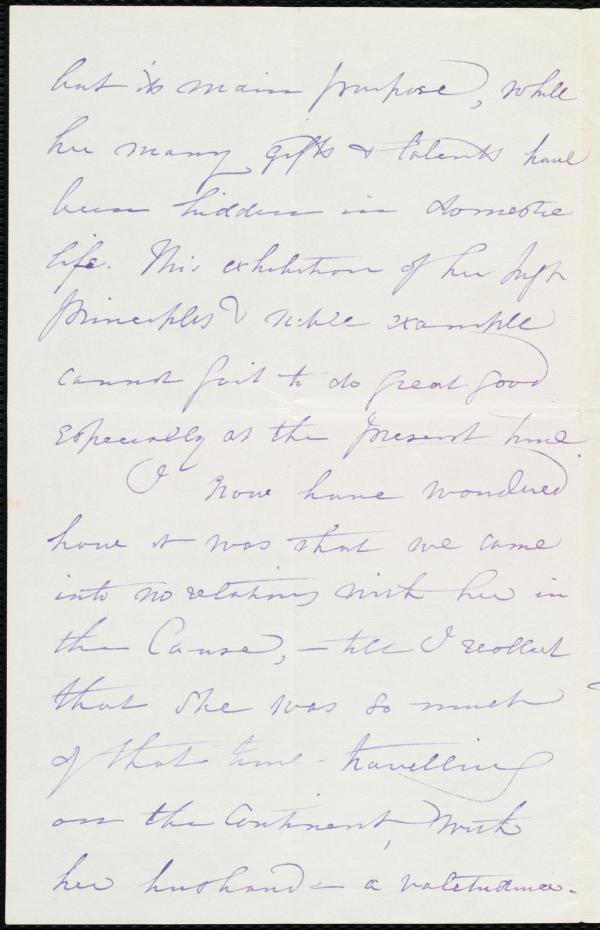 but its main purpose, while
her many gifts & talents have
been hidden in domestic
life. This exhibition of her high
principles & noble example
cannot fail to do great good
especially at the present time.
I now have wondered
how it was that we came
into no relations with her in
the Cause, – till I recollect
that she was so much
of that time travelling
on the Continent, with
her husband – a valetudina-